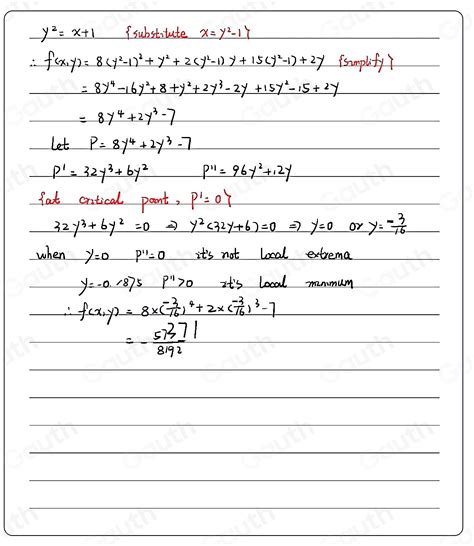 y² = x+1 {substitute x = y²-1}
∴ f(x,y) = 8(y²-1)² + y² + 2(y²-1)y + 15(y²-1) + 2y {simplify}
= 8y⁴ - 16y² + 8 + y² + 2y³ - 2y + 15y² - 15 + 2y
= 8y⁴ + 2y³ - 7
let P = 8y⁴ + 2y³ - 7
P' = 32y³ + 6y² P'' = 96y² + 12y
{at critical point, P' = 0}
32y³ + 6y² = 0 ⇒ y²(32y + 6) = 0 ⇒ y = 0 or y = -3/16
when y = 0 P'' = 0 it's not local extrema
y = -0.1875 P'' > 0 it's local minimum
∴ f(x,y) = 8×(-3/16)⁴ + 2×(-3/16)³ - 7
= - 57371/8192
Gauth